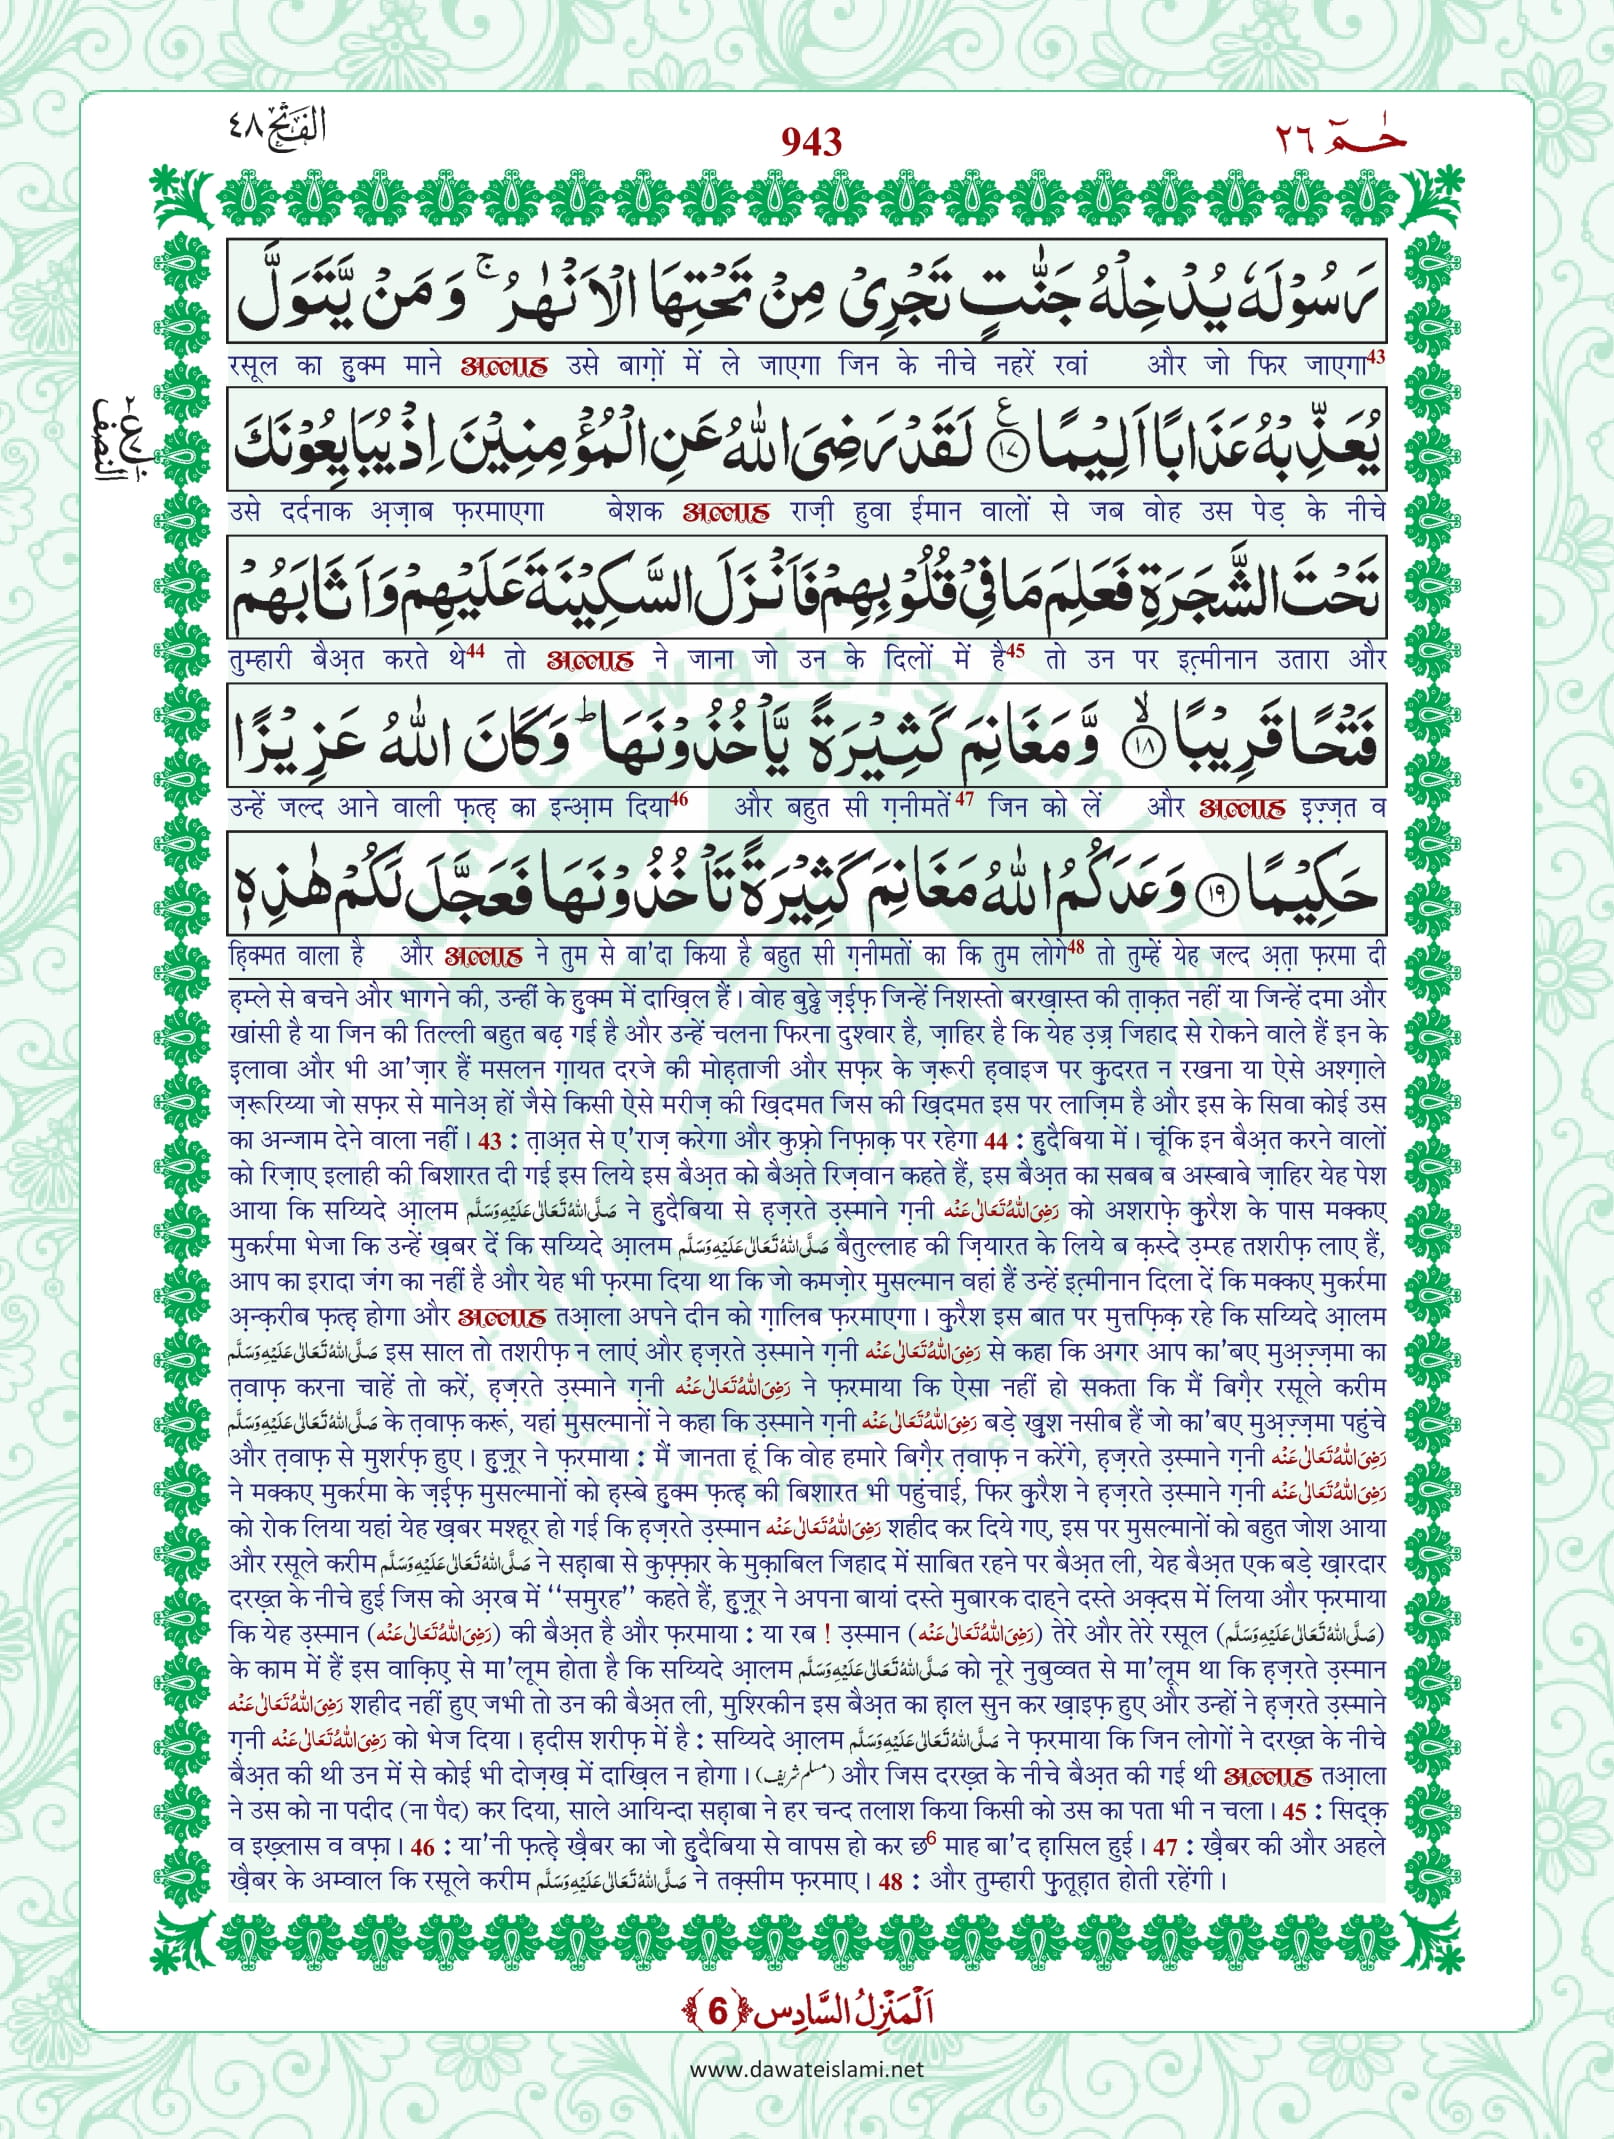 الفتح ٤٨
943
حٰمٓ ٢٦
رَسُوْلَهٗ یُدْخِلْهُ جَنّٰتٍ تَجْرِیْ مِنْ تَحْتِهَا الْاَنْهٰرُ ۚ وَ مَنْ یَّتَوَلَّ
रसूल का हुक्म माने अल्लाह उसे बाग़ों में ले जाएगा जिन के नीचे नहरें रवां और जो फिर जाएगा43
یُعَذِّبْهُ عَذَابًا اَلِیْمًا ﴿۱۷﴾ لَقَدْ رَضِیَ اللّٰهُ عَنِ الْمُؤْمِنِیْنَ اِذْ یُبَایِعُوْنَكَ
النصف
उसे दर्दनाक अ़ज़ाब फ़रमाएगा बेशक अल्लाह राज़ी हुवा ईमान वालों से जब वोह उस पेड़ के नीचे
تَحْتَ الشَّجَرَةِ فَعَلِمَ مَا فِیْ قُلُوْبِهِمْ فَاَنْزَلَ السَّكِیْنَةَ عَلَیْهِمْ وَ اَثَابَهُمْ
तुम्हारी बैअ़त करते थे44 तो अल्लाह ने जाना जो उन के दिलों में है45 तो उन पर इत़्मीनान उतारा और
فَتْحًا قَرِیْبًا ﴿۱۸﴾ۙ وَّ مَغَانِمَ كَثِیْرَةً یَّاْخُذُوْنَهَا ؕ وَ كَانَ اللّٰهُ عَزِیْزًا
उन्हें जल्द आने वाली फ़त्ह़ का इन्अ़ाम दिया46 और बहुत सी ग़नीमतें47 जिन को लें और अल्लाह इ़ज़्ज़त व
حَكِیْمًا ﴿۱۹﴾ وَعَدَكُمُ اللّٰهُ مَغَانِمَ كَثِیْرَةً تَاْخُذُوْنَهَا فَعَجَّلَ لَكُمْ هٰذِهٖ
ह़िक्मत वाला है और अल्लाह ने तुम से वा'दा किया है बहुत सी ग़नीमतों का कि तुम लोगे48 तो तुम्हें येह जल्द अ़त़ा फ़रमा दी
ह़म्ले से बचने और भागने की, उन्हीं के हुक्म में दाख़िल हैं। वोह बुढ्ढे ज़ई़फ़ जिन्हें निशस्तो बरख़ास्त की त़ाक़त नहीं या जिन्हें दमा और
खांसी है या जिन की तिल्ली बहुत बढ़ गई है और उन्हें चलना फिरना दुश्वार है, ज़ाहिर है कि येह उ़ज़्र जिहाद से रोकने वाले हैं इन के
इ़लावा और भी आ'ज़ार हैं मसलन ग़ायत दरजे की मोह़ताजी और सफ़र के ज़रूरी ह़वाइज पर कुदरत न रखना या ऐसे अश्ग़ाले
ज़रूरिय्या जो सफ़र से मानेअ़ हों जैसे किसी ऐसे मरीज़ की ख़िदमत जिस की ख़िदमत इस पर लाज़िम है और इस के सिवा कोई उस
का अन्जाम देने वाला नहीं। 43 : त़ाअ़त से ए'राज़ करेगा और कुफ़्रो निफ़ाक़ पर रहेगा 44 : हुदैबिया में। चूंकि इन बैअ़त करने वालों
को रिज़ाए इलाही की बिशारत दी गई इस लिये इस बैअ़त को बैअ़ते रिज़वान कहते हैं, इस बैअ़त का सबब ब अस्बाबे ज़ाहिर येह पेश
आया कि सय्यिदे अ़ालम صَلَّى اللهُ تَعَالٰى عَلَيْهِ وَسَلَّم ने हुदैबिया से ह़ज़रते उ़स्माने ग़नी رَضِىَ اللهُ تَعَالٰى عَنْه को अशराफ़े क़ुरैश के पास मक्कए
मुकर्रमा भेजा कि उन्हें ख़बर दें कि सय्यिदे अ़ालम صَلَّى اللهُ تَعَالٰى عَلَيْهِ وَسَلَّم बैतुल्लाह की ज़ियारत के लिये ब क़स्दे उ़म्रह तशरीफ़ लाए हैं,
आप का इरादा जंग का नहीं है और येह भी फ़रमा दिया था कि जो कमज़ोर मुसल्मान वहां हैं उन्हें इत़्मीनान दिला दें कि मक्कए मुकर्रमा
अ़न्क़रीब फ़त्ह़ होगा और अल्लाह तअ़ाला अपने दीन को ग़ालिब फ़रमाएगा। क़ुरैश इस बात पर मुत्तफ़िक़ रहे कि सय्यिदे अ़ालम
صَلَّى اللهُ تَعَالٰى عَلَيْهِ وَسَلَّم इस साल तो तशरीफ़ न लाएं और ह़ज़रते उ़स्माने ग़नी رَضِىَ اللهُ تَعَالٰى عَنْه से कहा कि अगर आप का'बए मुअ़ज़्ज़मा का
त़वाफ़ करना चाहें तो करें, ह़ज़रते उ़स्माने ग़नी رَضِىَ اللهُ تَعَالٰى عَنْه ने फ़रमाया कि ऐसा नहीं हो सकता कि मैं बिग़ैर रसूले करीम
صَلَّى اللهُ تَعَالٰى عَلَيْهِ وَسَلَّم के त़वाफ़ करूं, यहां मुसल्मानों ने कहा कि उ़स्माने ग़नी رَضِىَ اللهُ تَعَالٰى عَنْه बड़े ख़ुश नसीब हैं जो का'बए मुअ़ज़्ज़मा पहुंचे
और त़वाफ़ से मुशर्रफ़ हुए। हुज़ूर ने फ़रमाया : मैं जानता हूं कि वोह हमारे बिग़ैर त़वाफ़ न करेंगे, ह़ज़रते उ़स्माने ग़नी رَضِىَ اللهُ تَعَالٰى عَنْه
ने मक्कए मुकर्रमा के ज़ई़फ़ मुसल्मानों को ह़स्बे हुक्म फ़त्ह़ की बिशारत भी पहुंचाई, फिर क़ुरैश ने ह़ज़रते उ़स्माने ग़नी رَضِىَ اللهُ تَعَالٰى عَنْه
को रोक लिया यहां येह ख़बर मश्हूर हो गई कि ह़ज़रते उ़स्मान رَضِىَ اللهُ تَعَالٰى عَنْه शहीद कर दिये गए, इस पर मुसल्मानों को बहुत जोश आया
और रसूले करीम صَلَّى اللهُ تَعَالٰى عَلَيْهِ وَسَلَّم ने सह़ाबा से कुफ़्फ़ार के मुक़ाबिल जिहाद में साबित रहने पर बैअ़त ली, येह बैअ़त एक बड़े ख़ारदार
दरख़्त के नीचे हुई जिस को अ़रब में ''समुरह'' कहते हैं, हुज़ूर ने अपना बायां दस्ते मुबारक दाह्ने दस्ते अक़्दस में लिया और फ़रमाया
कि येह उ़स्मान (رَضِىَ اللهُ تَعَالٰى عَنْه) की बैअ़त है और फ़रमाया : या रब ! उ़स्मान (رَضِىَ اللهُ تَعَالٰى عَنْه) तेरे और तेरे रसूल (صَلَّى اللهُ تَعَالٰى عَلَيْهِ وَسَلَّم)
के काम में हैं इस वाक़िए़ से मा'लूम होता है कि सय्यिदे अ़ालम صَلَّى اللهُ تَعَالٰى عَلَيْهِ وَسَلَّم को नूरे नुबुव्वत से मा'लूम था कि ह़ज़रते उ़स्मान
رَضِىَ اللهُ تَعَالٰى عَنْه शहीद नहीं हुए जभी तो उन की बैअ़त ली, मुश्रिकीन इस बैअ़त का ह़ाल सुन कर ख़ाइफ़ हुए और उन्हों ने ह़ज़रते उ़स्माने
ग़नी رَضِىَ اللهُ تَعَالٰى عَنْه को भेज दिया। ह़दीस शरीफ़ में है : सय्यिदे अ़ालम صَلَّى اللهُ تَعَالٰى عَلَيْهِ وَسَلَّم ने फ़रमाया कि जिन लोगों ने दरख़्त के नीचे
बैअ़त की थी उन में से कोई भी दोज़ख़ में दाख़िल न होगा। (مسلم شریف) और जिस दरख़्त के नीचे बैअ़त की गई थी अल्लाह तअ़ाला
ने उस को ना पदीद (ना पैद) कर दिया, साले आयिन्दा सह़ाबा ने हर चन्द तलाश किया किसी को उस का पता भी न चला। 45 : सिद्क़
व इख़्लास व वफ़ा। 46 : या'नी फ़त्ह़े ख़ैबर का जो हुदैबिया से वापस हो कर छ6 माह बा'द ह़ासिल हुई। 47 : ख़ैबर की और अहले
ख़ैबर के अम्वाल कि रसूले करीम صَلَّى اللهُ تَعَالٰى عَلَيْهِ وَسَلَّم ने तक़्सीम फ़रमाए। 48 : और तुम्हारी फ़ुतूह़ात होती रहेंगी।
اَلْمَنْزِلُ السَّادِس ﴿6﴾
www.dawateislami.net